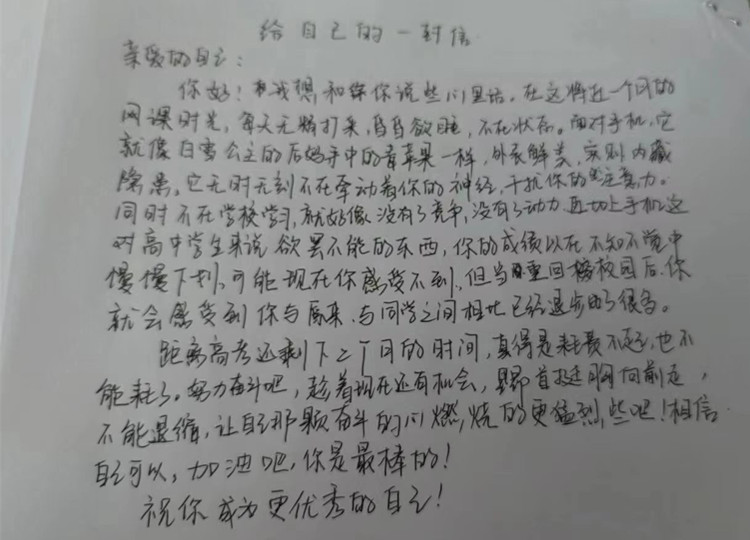 给自己的一封信
亲爱的自己:
你好!我想和你说些心里话。在这将近一个月的
网课时光,每天无精打采,昏昏欲睡,不在状态。面对手机,它
就像白雪公主的后妈手中的毒苹果一样,外表鲜美,实则内藏
隐患,它无时无刻不在牵动着你的神经,干扰你的注意力。
同时不在学校学习,就好像没有了竞争,没有了动力再加上手机这
对高中学生来说欲罢不能的东西,你的成绩以在不知不觉中
慢慢下划,可能现在你感受不到,但当重回校园后,你
就会感受到你与原来、与同学之间相比已经退步的了很多。
距离高考还剩下二个月的时间,真得是耗费不起,也不
能耗了。努力奋斗吧,趁着现在还有机会,昂首挺胸向前走,
不能退缩,让自己那颗奋斗的心燃烧的更猛烈些吧!相信
自己可以,加油吧,你是最棒的!
祝你成为更优秀的自己!